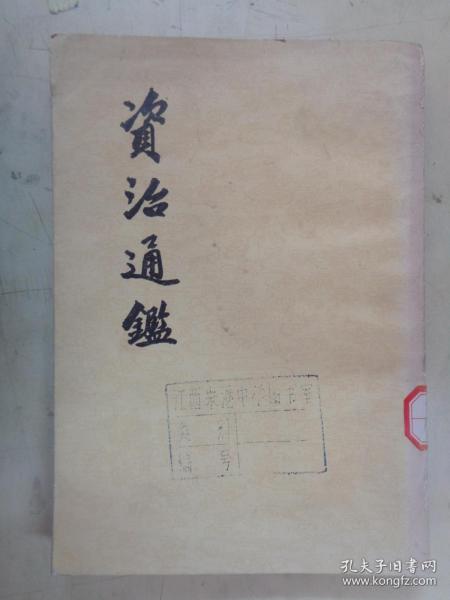 資治通鑑
江西崇港中学图书室
类别
编号
孔夫子旧书网
www.kongfz.com